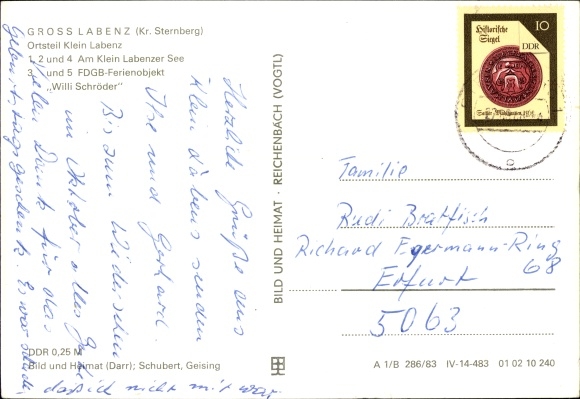 GROSS LABENZ (Kr. Sternberg)
Ortsteil Klein Labenz
1, 2 und 4 Am Klein Labenzer See
3 und 5 FDGB-Ferienobjekt
„Willi Schröder"
Herzliche Grüße aus
Klein Labenz senden
Uhe und Gerhard.
Bis zum Wiedersehen
im Oktober alles Gute
Vielen Dank für das
Geburtstagsgeschenk. Es war schade,
daß ich nicht mit war
DDR 0,25 M
Bild und Heimat (Darr); Schubert, Geising
BILD UND HEIMAT · REICHENBACH (VOGTL)
Historische
Siegel
10
DDR
Familie
Rudi Bratfisch
Richard Eyermann-Ring
68
Erfurt
5063
A 1/B 286/83 IV-14-483 01 02 10 240